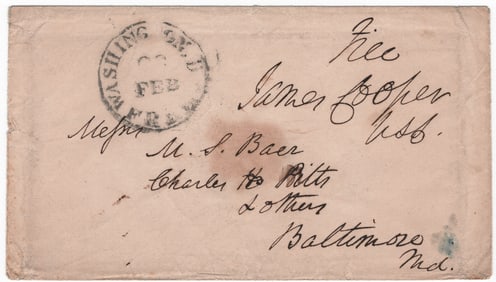 WASHINGTON. D
FEB
FREE
Free
James Cooper
USS.
Messrs
M. S. Baer
Charles H. Pitts
& others
Baltimore
Md.